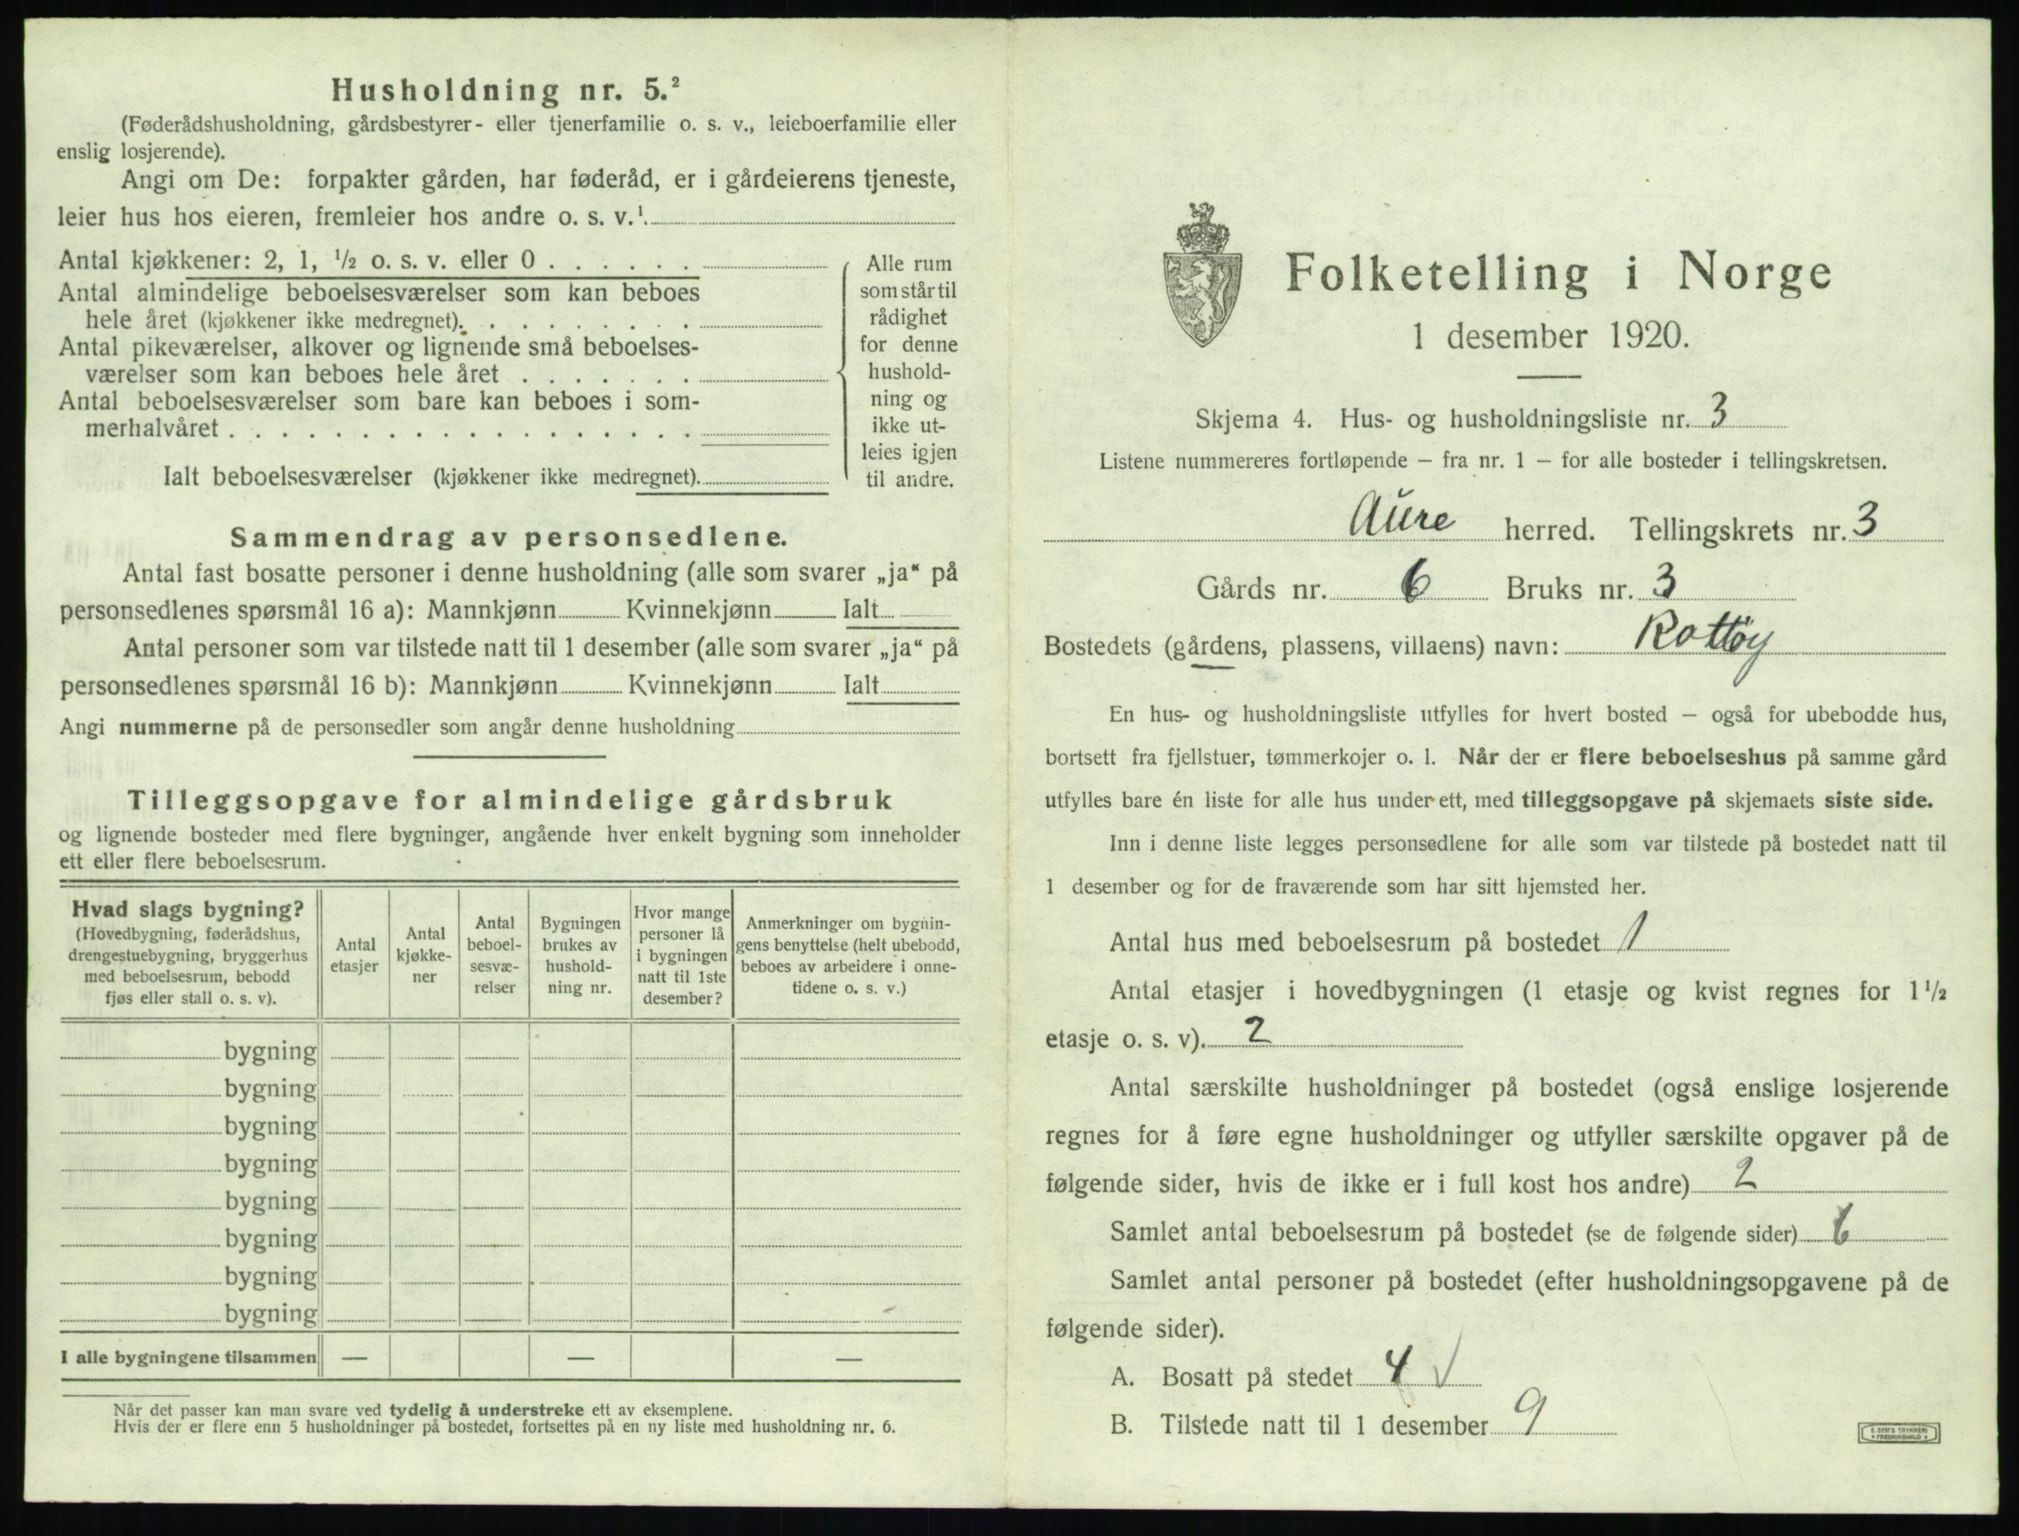 Husholdning nr. 5.²
(Føderådshusholdning, gårdsbestyrer- eller tjenerfamilie o. s. v., leieboerfamilie eller
enslig losjerende).
Angi om De: forpakter gården, har føderåd, er i gårdeierens tjeneste,
leier hus hos eieren, fremleier hos andre o. s. v.¹
Antal kjøkkener: 2, 1, ½ o. s. v. eller 0 . . . . . .
Antal almindelige beboelsesværelser som kan beboes
hele året (kjøkkener ikke medregnet). . . . . . . . .
Antal pikeværelser, alkover og lignende små beboelses-
værelser som kan beboes hele året . . . . . . .
Antal beboelsesværelser som bare kan beboes i som-
merhalvåret . . . . . . . . . . . . . . . . . .
Ialt beboelsesværelser (kjøkkener ikke medregnet).
Alle rum
som står til
rådighet
for denne
hushold-
ning og
ikke ut-
leies igjen
til andre.
Sammendrag av personsedlene.
Antal fast bosatte personer i denne husholdning (alle som svarer „ja“ på
personsedlenes spørsmål 16 a): Mannkjønn Kvinnekjønn Ialt
Antal personer som var tilstede natt til 1 desember (alle som svarer „ja“ på
personsedlenes spørsmål 16 b): Mannkjønn Kvinnekjønn Ialt
Angi nummerne på de personsedler som angår denne husholdning
Tilleggsopgave for almindelige gårdsbruk
og lignende bosteder med flere bygninger, angående hver enkelt bygning som inneholder
ett eller flere beboelsesrum.
Hvad slags bygning?
(Hovedbygning, føderådshus,
drengestuebygning, bryggerhus
med beboelsesrum, bebodd
fjøs eller stall o. s. v).
Antal
etasjer
Antal
kjøkke-
ner
Antal
beboel-
sesvæ-
relser
Bygningen
brukes av
hushold-
ning nr.
Hvor mange
personer lå
i bygningen
natt til 1ste
desember?
Anmerkninger om bygnin-
gens benyttelse (helt ubebodd,
beboes av arbeidere i onne-
tidene o. s. v.)
bygning
bygning
bygning
bygning
bygning
bygning
bygning
bygning
I alle bygningene tilsammen — — —
Når det passer kan man svare ved tydelig å understreke ett av eksemplene.
Hvis der er flere enn 5 husholdninger på bostedet, fortsettes på en ny liste med husholdning nr. 6.
Folketelling i Norge
1 desember 1920.
Skjema 4. Hus- og husholdningsliste nr. 3
Listene nummereres fortløpende – fra nr. 1 – for alle bosteder i tellingskretsen.
Aure herred. Tellingskrets nr. 3
Gårds nr. 6 Bruks nr. 3
Bostedets (gårdens, plassens, villaens) navn: Rottøy
En hus- og husholdningsliste utfylles for hvert bosted – også for ubebodde hus,
bortsett fra fjellstuer, tømmerkojer o. l. Når der er flere beboelseshus på samme gård
utfylles bare én liste for alle hus under ett, med tilleggsopgave på skjemaets siste side.
Inn i denne liste legges personsedlene for alle som var tilstede på bostedet natt til
1 desember og for de fraværende som har sitt hjemsted her.
Antal hus med beboelsesrum på bostedet 1
Antal etasjer i hovedbygningen (1 etasje og kvist regnes for 1½
etasje o. s. v). 2
Antal særskilte husholdninger på bostedet (også enslige losjerende
regnes for å føre egne husholdninger og utfyller særskilte opgaver på de
følgende sider, hvis de ikke er i full kost hos andre) 2
Samlet antal beboelsesrum på bostedet (se de følgende sider) 6
Samlet antal personer på bostedet (efter husholdningsopgavene på de
følgende sider).
A. Bosatt på stedet 4 √
B. Tilstede natt til 1 desember 9